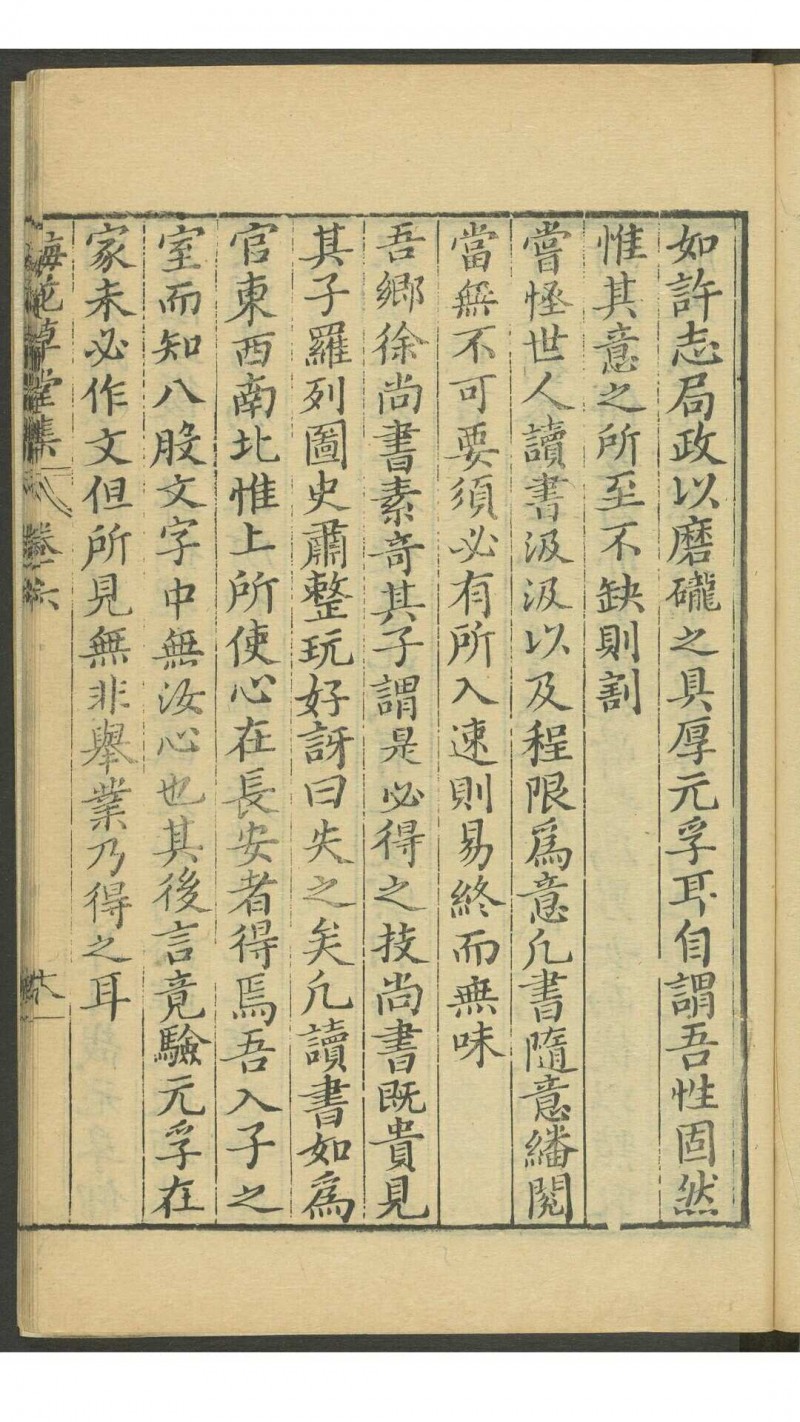 如許志局政以磨礲之具厚元孚耳自謂吾性固然
惟其意之所至不缺則割
嘗怪世人讀書汲汲以及程限爲意凡書隨意繙閱
當無不可要須必有所入速則易終而無味
吾鄉徐尚書素奇其子謂是必得之技尚書既貴見
其子羅列圖史肅整玩好訝曰失之矣凡讀書如爲
官東西南北惟上所使心在長安者得焉吾入子之
室而知八股文字中無汝心也其後言竟驗元孚在
家未必作文但所見無非舉業乃得之耳
梅花草堂集 卷十六